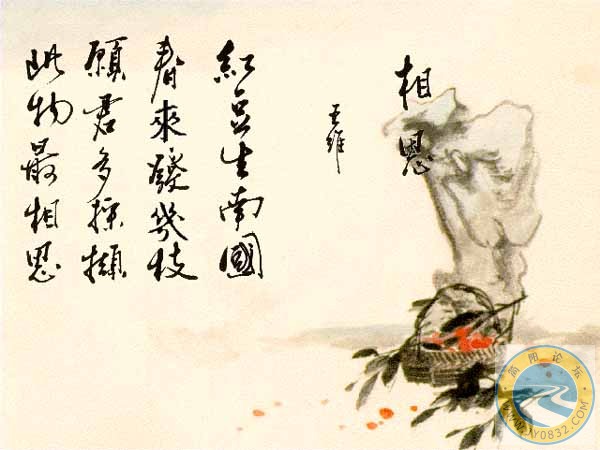 相思
王維
紅豆生南國
春來發幾枝
願君多採擷
此物最相思
简阳论坛
WWW.JY0832.COM